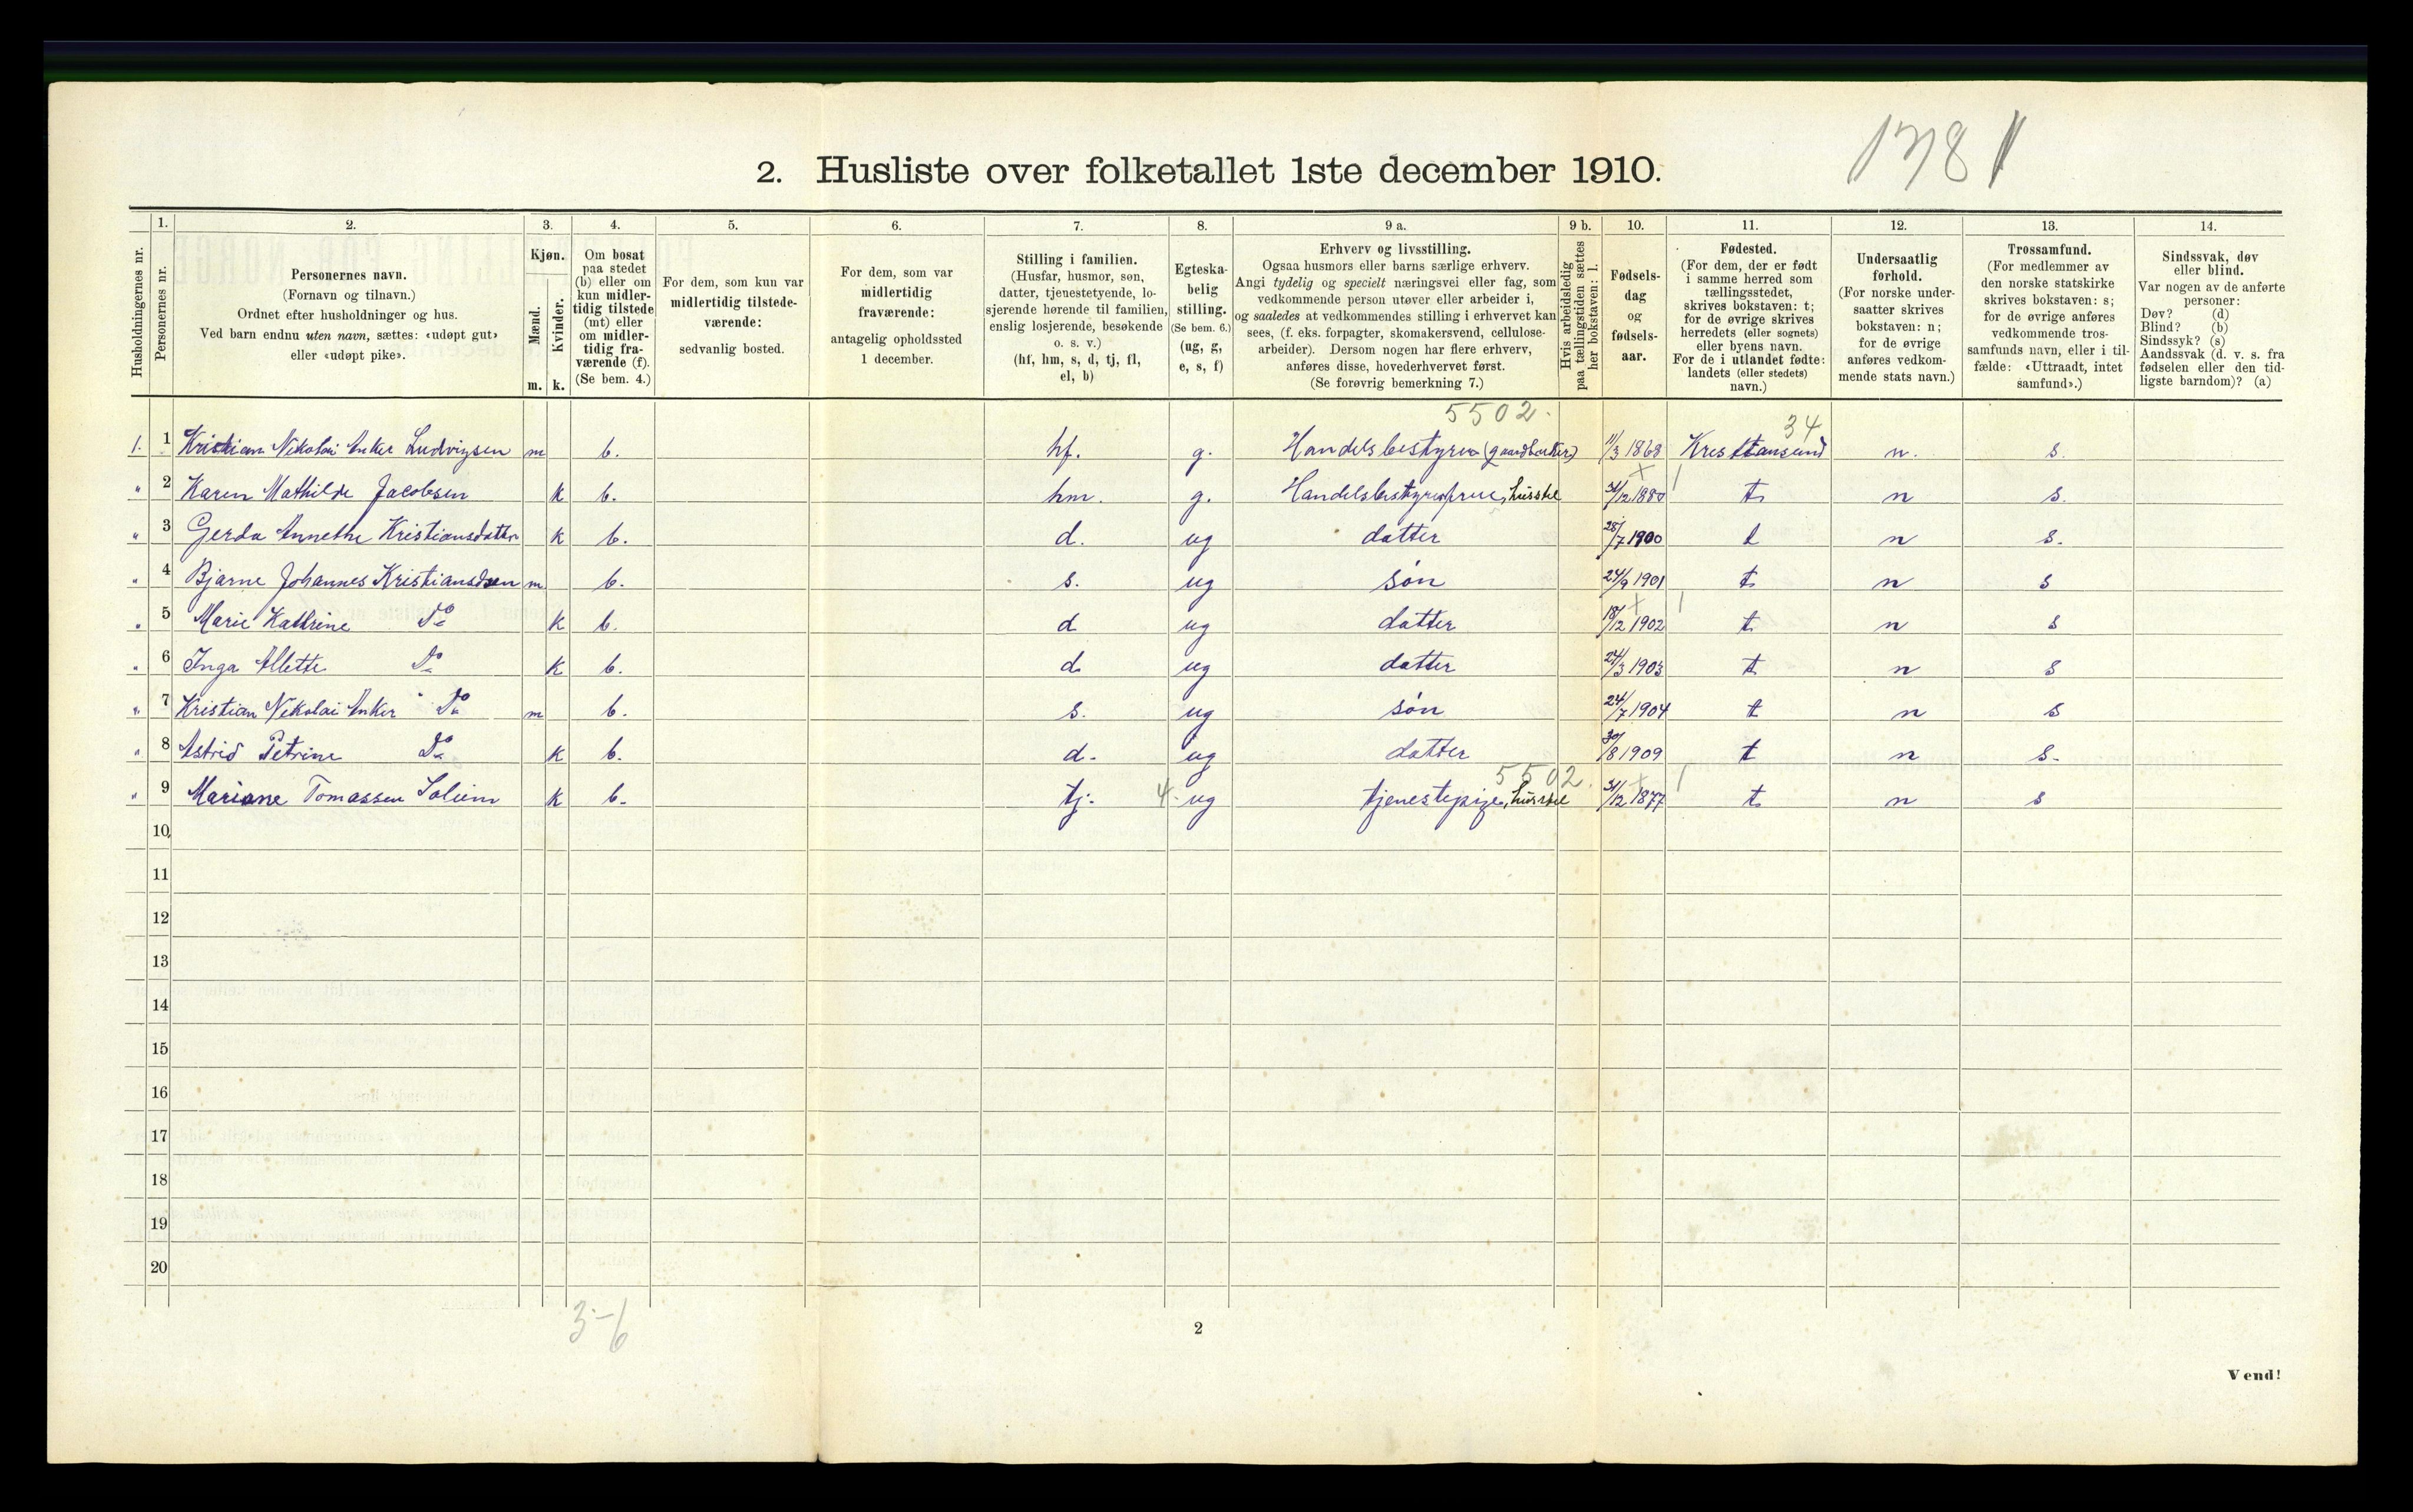 1381
2. Husliste over folketallet 1ste december 1910.
Husholdningernes nr.
1.
Personernes nr.
2.
Personernes navn.
(Fornavn og tilnavn.)
Ordnet efter husholdninger og hus.
Ved barn endnu uten navn, sættes: «udøpt gut»
eller «udøpt pike».
3.
Kjøn.
Mænd.
Kvinder.
m. k.
4.
Om bosat
paa stedet
(b) eller om
kun midler-
tidig tilstede
(mt) eller
om midler-
tidig fra-
værende (f).
(Se bem. 4.)
5.
For dem, som kun var
midlertidig tilstede-
værende:
sedvanlig bosted.
6.
For dem, som var
midlertidig
fraværende:
antagelig opholdssted
1 december.
7.
Stilling i familien.
(Husfar, husmor, søn,
datter, tjenestetyende, lo-
sjerende hørende til familien,
enslig losjerende, besøkende
o. s. v.)
(hf, hm, s, d, tj, fl,
el, b)
8.
Egteska-
belig
stilling.
(Se bem. 6.)
(ug, g,
e, s, f)
9 a.
Erhverv og livsstilling.
Ogsaa husmors eller barns særlige erhverv.
Angi tydelig og specielt næringsvei eller fag, som
vedkommende person utøver eller arbeider i,
og saaledes at vedkommendes stilling i erhvervet kan
sees, (f. eks. forpagter, skomakersvend, cellulose-
arbeider). Dersom nogen har flere erhverv,
anføres disse, hovederhvervet først.
(Se forøvrig bemerkning 7.)
9 b.
Hvis arbeidsledig
paa tællingstiden sættes
her bokstaven: l.
10.
Fødsels-
dag
og
fødsels-
aar.
11.
Fødested.
(For dem, der er født
i samme herred som
tællingsstedet,
skrives bokstaven: t;
for de øvrige skrives
herredets (eller sognets)
eller byens navn.
For de i utlandet fødte:
landets (eller stedets)
navn.)
12.
Undersaatlig
forhold.
(For norske under-
saatter skrives
bokstaven: n;
for de øvrige
anføres vedkom-
mende stats navn.)
13.
Trossamfund.
(For medlemmer av
den norske statskirke
skrives bokstaven: s;
for de øvrige anføres
vedkommende tros-
samfunds navn, eller i til-
fælde: «Uttraadt, intet
samfund».)
14.
Sindssvak, døv
eller blind.
Var nogen av de anførte
personer:
Døv? (d)
Blind? (b)
Sindssyk? (s)
Aandssvak (d. v. s. fra
fødselen eller den tid-
ligste barndom)? (a)
5502. 34
1. 1 Kristian Nikolai Anker Ludvigsen m b. hf. g. Handelsbestyrer (gaardbruker) 11/3 1868 Kristiansund n. s.
" 2 Karen Mathilde Jacobsen k b. hm. g. Handelsbestyrerfrue, husstel 31/12 1880 t n s.
" 3 Gerda Annethe Kristiansdatter k b. d. ug datter 28/7 1900 t n s.
" 4 Bjarne Johannes Kristiansen m b. s. ug søn 24/9 1901 t. n s
" 5 Marie Kathrine Do k b. d ug datter 18/12 1902 t. n s
" 6 Inga Alette Do k b. d ug datter 24/3 1903 t n s
" 7 Kristian Nikolai Anker Do m b. s. ug søn 24/7 1904 t n s
" 8 Astrid Petrine Do k b. d. ug datter 30/8 1909 t n s.
5502.
" 9 Mariane Tomassen Soliem k b. tj. 4 ug tjenestepige, husstel 31/12 1877 t. n s
10
11
12
13
14
15
16
17
18
19
20
3-6
2
Vend!